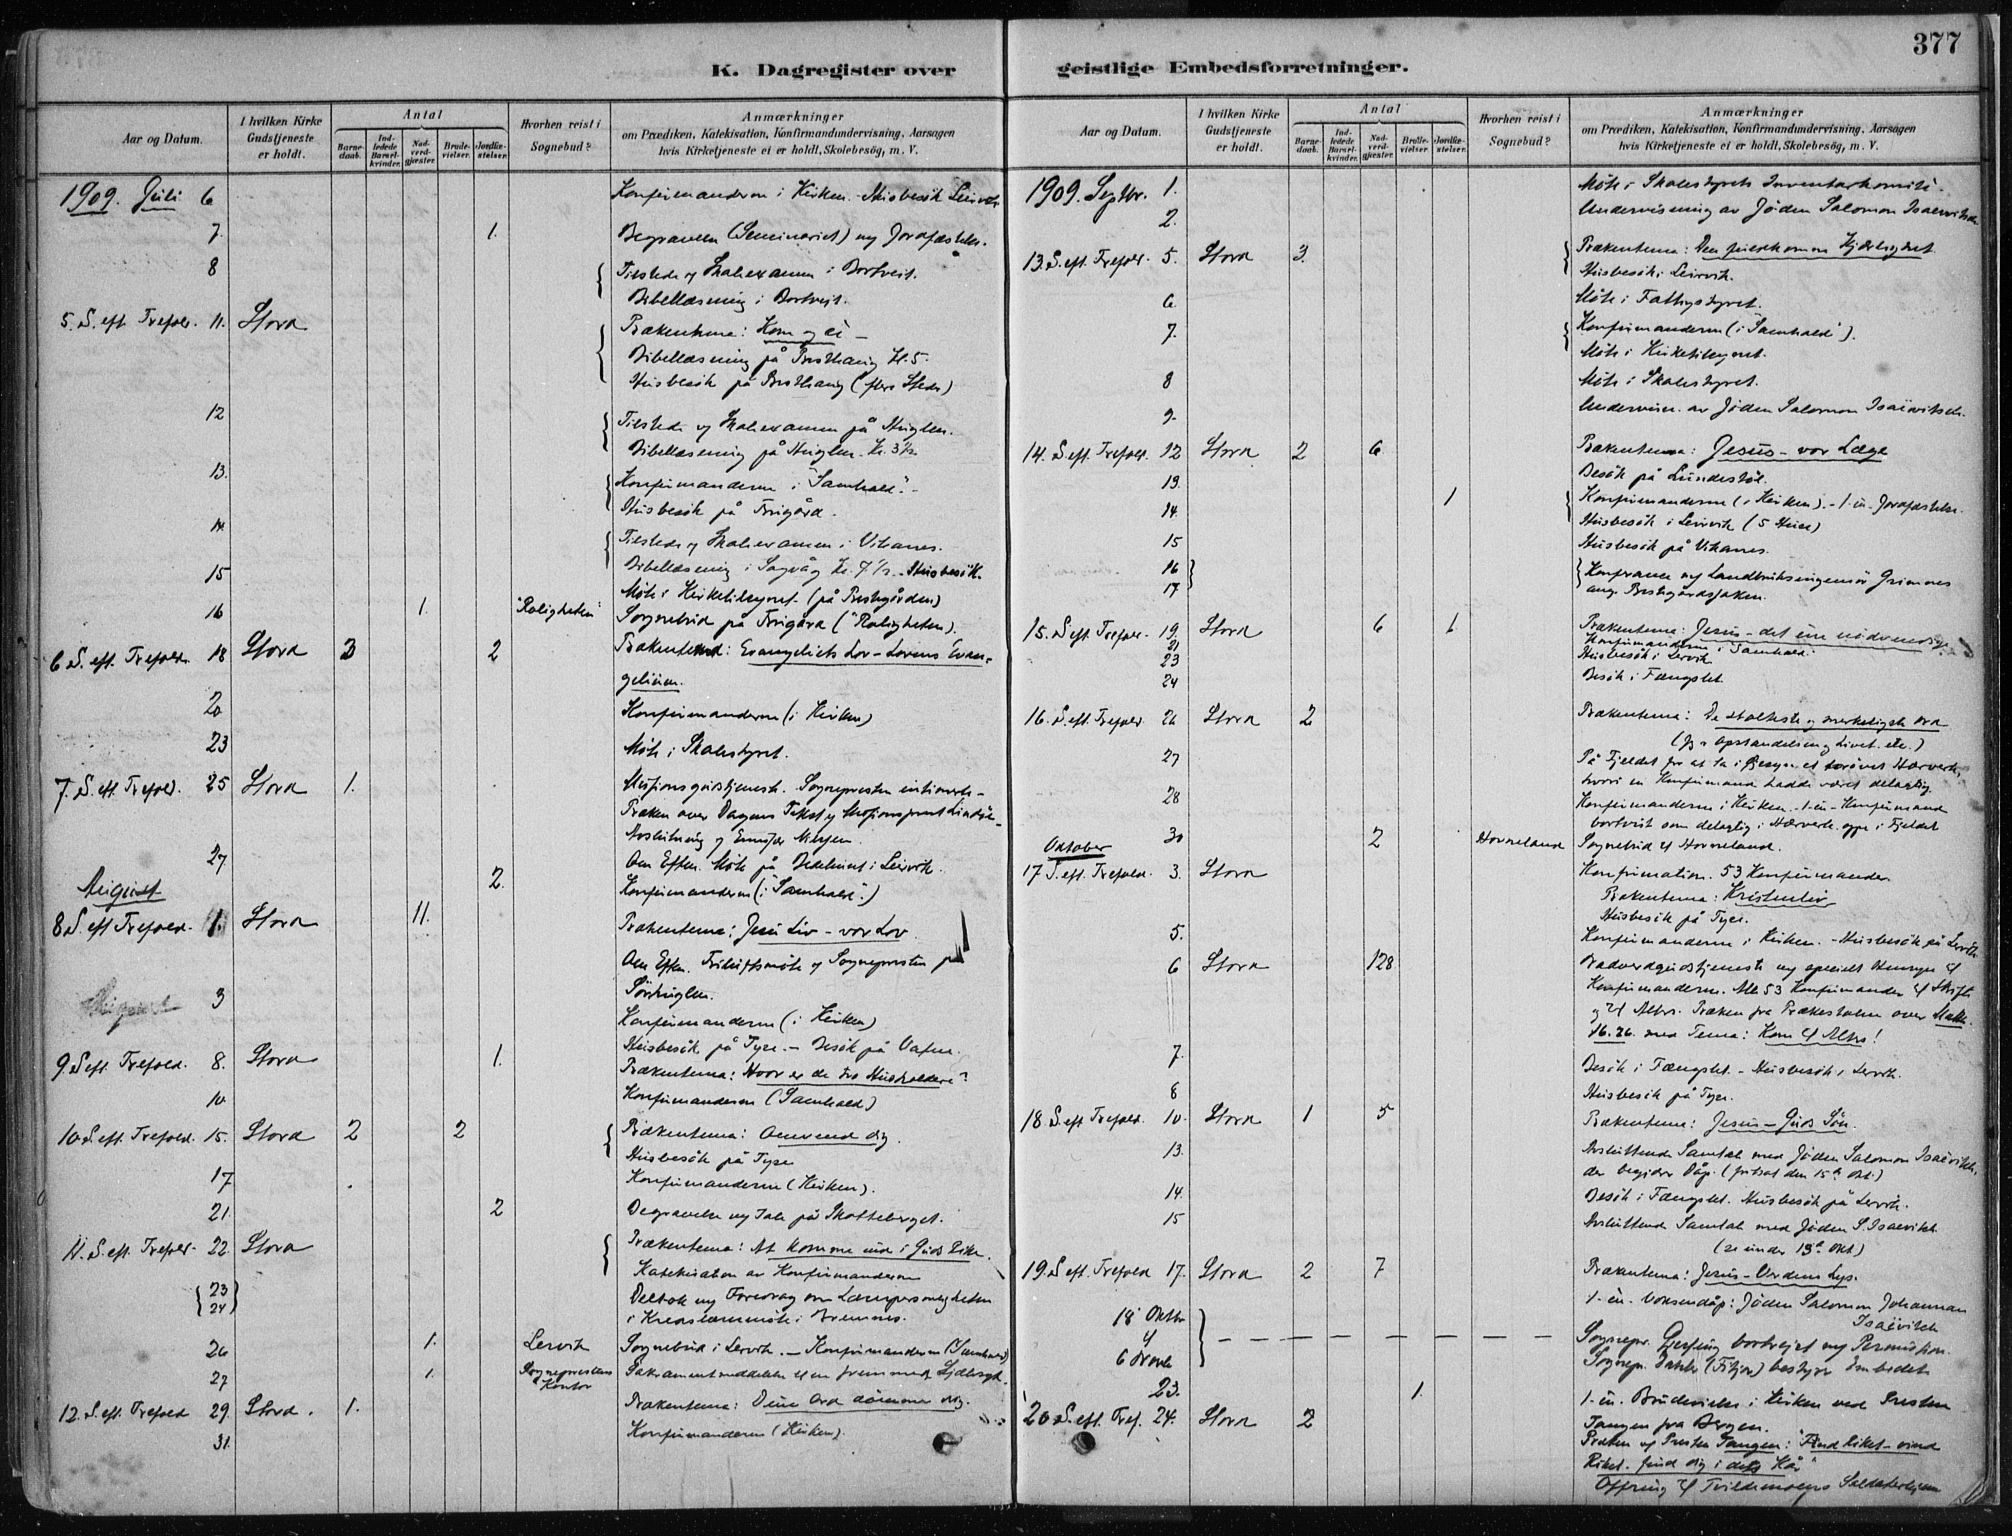 377
K. Dagregister over geistlige Embedsforretninger.
Aar og Datum.
I hvilken Kirke Gudstjeneste er holdt.
Antal
Barnedaab.
Indledede Barselkvinder.
Nadverdgjester.
Brudevielser.
Jordfæstelser.
Hvorhen reist i Sognebud?
Anmærkninger
om Prædiken, Katekisation, Konfirmandundervisning, Aarsagen
hvis Kirketjeneste ei er holdt, Skolebesøg, m. V.
1909. Juli 6 Konfirmanderne i Kirken. Husbesøk Leirvik
7. 1. Begravelse (Seminariet) og Jordfæstelse.
8 Tilstede v. Skoleexamen i Bortveit.
Bibellæsning i Bortveit.
5. S. eft. Trefold. 11. Stord Prækentema: Kom og se
Bibellæsning på Kl. 5.
Husbesøk på (flere Steder)
12 Tilstede v. Skoleexamen på Huglen.
Bibellæsning på Huglen Kl. 3 1/2
13. Konfirmanderne i "Samhald".
Husbesøk på Frugård.
14. Tilstede v. Skoleexamen i Vikanes.
15 Bibellæsning i Sagvåg Kl. 7 1/2. Husbesøk.
Møte i Kirketilsynet (på Prestegården)
16 1. "Roligheten" Sognebud på Frugård ("Roligheten").
6 S. eft. Trefold. 18 Stord 3 2 Prækentema: Evangeliets Lov - Lovens Evangelium.
20 Konfirmanderne (i Kirken)
23 Møte i Skolestyret.
7. S. eft. Trefold. 25 Stord 1. Missionsgudstjeneste. Sognepresten
Præken over Dagens Tekst v. Missionsprest
Avslutning v.
27 2. Om Eftm. Møte på Bedehuset i Leirvik.
August Konfirmanderne (i "Samhald".)
8 S. eft. Trefold. 1. Stord 11. Prækentema: Jesu Liv - vor Lov
Om Eftm. Friluftsmøte v. Sognepresten på
August 3 Sørhuglen.
Konfirmanderne (i Kirken)
Husbesøk på Tyse. - Besøk på
9 S. eft. Trefold. 8. Stord 1. Prækentema: Hvor er de tro Husholdere?
10 Konfirmanderne (Samhald)
10 S. eft. Trefold. 15. Stord 2 2 Prækentema: Omvend dig.
Husbesøk på Tyse
17 Konfirmanderne (Kirken).
21. 2 Begravelse og Tale på Skotteberget.
11. S. eft. Trefold. 22 Stord Prækentema: At komme ind i Guds Rike.
Katekisation av Konfirmanderne
23
24 Deltok og Foredrag om
i i Bremnes.
26 1. Lervik Sognebud i Lervik. - Konfirmanderne (Samhald)
27 1. Sogneprestens Kontor Sakramentmeddelelse til en fremmed
12. S. eft. Trefold 29. Stord. 1. Prækentema: Dine Ord dømme dig.
31. Konfirmanderne (Kirken).
Aar og Datum.
I hvilken Kirke Gudstjeneste er holdt.
Antal
Barnedaab.
Indledede Barselkvinder.
Nadverdgjester.
Brudevielser.
Jordfæstelser.
Hvorhen reist i Sognebud?
Anmærkninger
om Prædiken, Katekisation, Konfirmandundervisning, Aarsagen
hvis Kirketjeneste ei er holdt, Skolebesøg, m. V.
1909. Septbr. 1. Møte i Skolestyrets Inventarkomité.
2. Undervisning av Jøden Salomon Isaëvitsch
13. S. eft. Trefold. 5. Stord 3. Prækentema: Den fuldkomne Kjærlighet
Husbesøk i Leirvik.
6. Møte i Fattigstyret.
7. Konfirmanderne (i "Samhald").
Møte i Kirketilsynet.
8 Møte i Skolestyret.
9. Undervisn. av Jøden Salomon Isaëvitsch.
14. S. eft. Trefold. 12 Stord 2 6 Prækentema: Jesus - vor Læge
13. Besøk på Lundestøl.
14. 1 Konfirmanderne (i Kirken). - 1 - en - Jordfæstelse.
Husbesøk i Leirvik (5 Huse)
15 Husbesøk på Vikanes.
16
17 Konferance og Landbruksingeniør Grimnes
ang. Prestegårdssaken.
15. S. eft. Trefold. 19. Stord 6 1. Prækentema: Jesus - det ene nødvendige
21 Konfirmanderne i Samhald.
23 Husbesøk i Lervik
24 Besøk i Fængslet.
16. S. eft. Trefold. 26 Stord 2 Prækentema: De stolteste og merkeligste Ord
(Jeg er Opstandelsen og Livet. etc.)
27 På Fjeldet for at ta i Øiesyn et forøvet Hærverk,
hvori en Konfirmand hadde været delagtig.
28 Konfirmanderne i Kirken. - 1 - en - Konfirmand
bortvist som delagtig i Hærverk oppe i Fjeldet
Oktober 30 2 Hovneland Sognebud til Hovneland.
17 S. eft. Trefold. 3. Stord Konfirmation. 53 Konfirmander
Prækentema: Kristenliv
Husbesøk på Tyse.
5. Konfirmanderne i Kirken. - Husbesøk på Lervik
6 Stord 128 Nadverdgudstjeneste og specielt Hensyn til
Konfirmanderne. Alle 53 Konfirmander til Skrifte
og til Alters. Præken fra Prækestolen over Matth.
16. 26. med Tema: Kom til Alters!
7. Besøk i Fængslet. - Husbesøk i Lervik.
8 Husbesøk på Tyse.
18 S. eft. Trefold. 10. Stord 1 5 Prækentema: Jesus - Guds Søn.
13. Avsluttende Samtale med Jøden Salomon Isaëvitsch,
der begjærer Dåp. (fortsat den 15de Okt.)
14. Besøk i Fængslet. Husbesøk på Lervik.
15 Avsluttende Samtale med Jøden S. Isaëvitsch
(se under 13de Okt.)
19. S. eft. Trefold 17. Stord 2 7 Prækentema: Jesus - Verdens Lys.
1 - en - Voksendåp: Jøden Salomon Johannan
Isaëvitsch
18 Oktbr
til
6 Novbr Sognepr. Gjerding bortreist og Permission.
Sognepr. (Fitjar) bestyrer Embedet
23. 1. 1 - en - Brudevielse i Kirken ved Presten
Tangen fra Bergen.
20 S. eft. Tref. 24. Stord 2 Præken v. Presten Tangen: "Find Riket - vind
Riket. find dig i dets Kår"
Offring til Tvildemoens Soldaterhjem